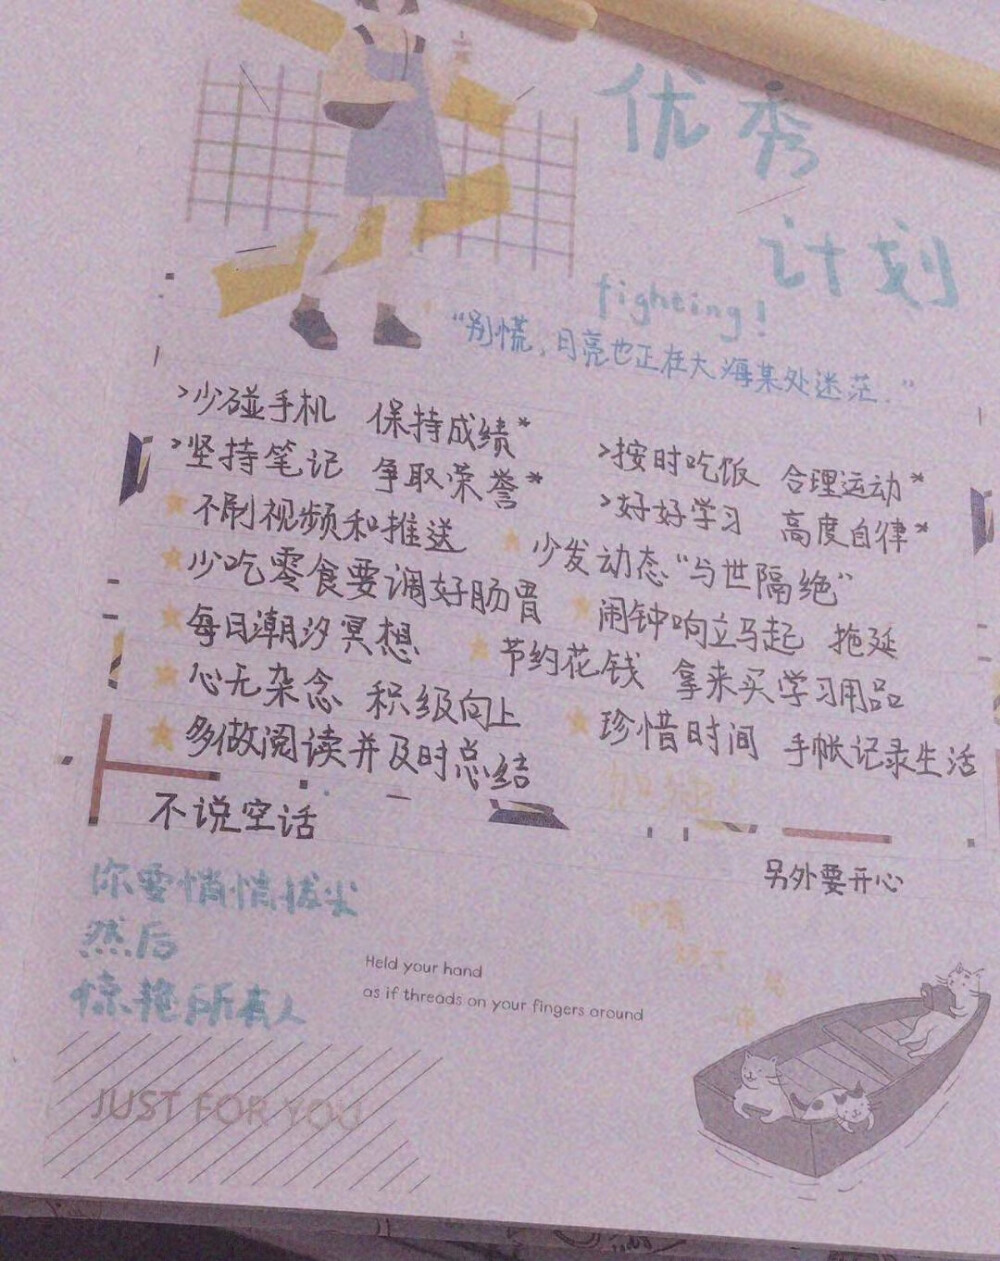 优秀
计划
fighting!
“别慌，月亮也正在大海某处迷茫.”
>少碰手机 保持成绩*
>按时吃饭 合理运动*
>坚持笔记 争取荣誉*
>好好学习 高度自律*
不刷视频和推送
少发动态“与世隔绝”
少吃零食要调好肠胃
闹钟响立马起 拖延
每日潮汐冥想
节约花钱 拿来买学习用品
心无杂念 积级向上
珍惜时间 手帐记录生活
多做阅读并及时总结
不说空话
另外要开心
你要悄悄拔尖
然后
惊艳所有人
Held your hand
as if threads on your fingers around
JUST FOR YOU